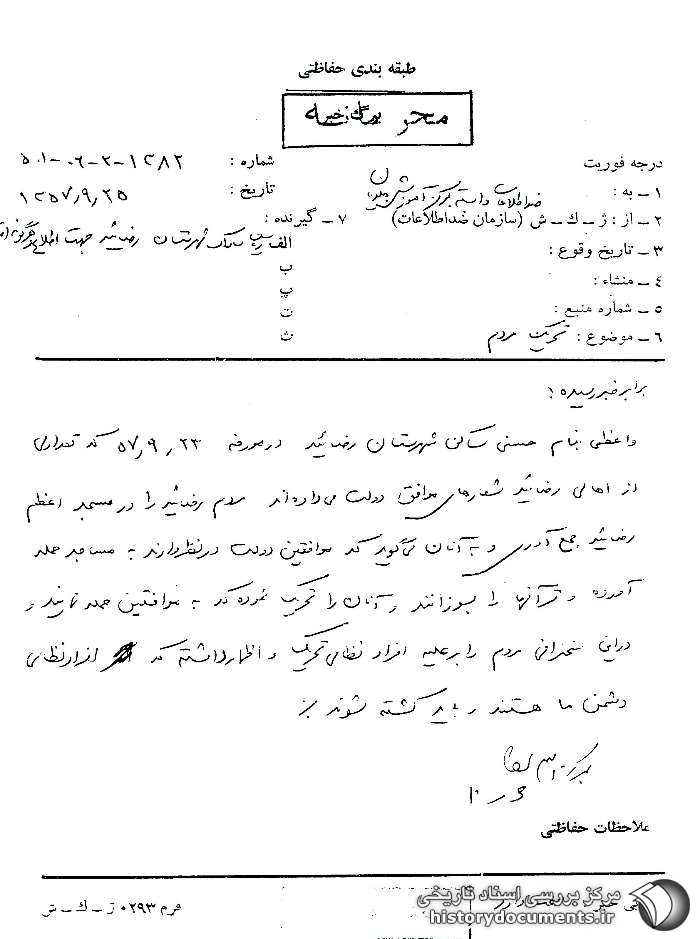 طبقه بندی حفاظتی
برگ خبر
درجه فوریت
شماره : ۱۲۸۲-۲-۰۶-۵۰۱
۱ – به : ضداطلاعات مرکز آموزش
تاریخ : ۱۳۵۷٫۹٫۲۵
۲ – از : ژ – ك – ش (سازمان ضداطلاعات)
۷ – گیرنده :
۳ – تاریخ وقوع :
الف ساواک شهرستان رضائیه جهت اطلاع
۴ – منشاء :
ب
پ
۵ – شماره منبع :
ت
۶ – موضوع : تحریک مردم
ث
برابر خبر رسیده :
واعظی بنام حسنی ساکن شهرستان رضائیه در مورخه ۵۷٫۹٫۲۳ که تعدادی
از اهالی رضائیه شعارهای موافق دولت می‌داده‌اند مردم رضائیه را در مسجد اعظم
رضائیه جمع آوری و به آنان میگوید که موافقین دولت در نظر دارند به مساجد حمله
آورده و قرآنها را بسوزانند و آنان را تحریک نموده که به موافقین حمله نمایند و
در این سخنرانی مردم را بر علیه افراد نظامی تحریک و اظهار داشته که افراد نظامی
دشمن ما هستند و باید کشته شوند
ملاحظات حفاظتی
فرم ۰۲۹۳ ژ – ك – ش
مرکز بررسی اسناد تاریخی
historydocuments.ir